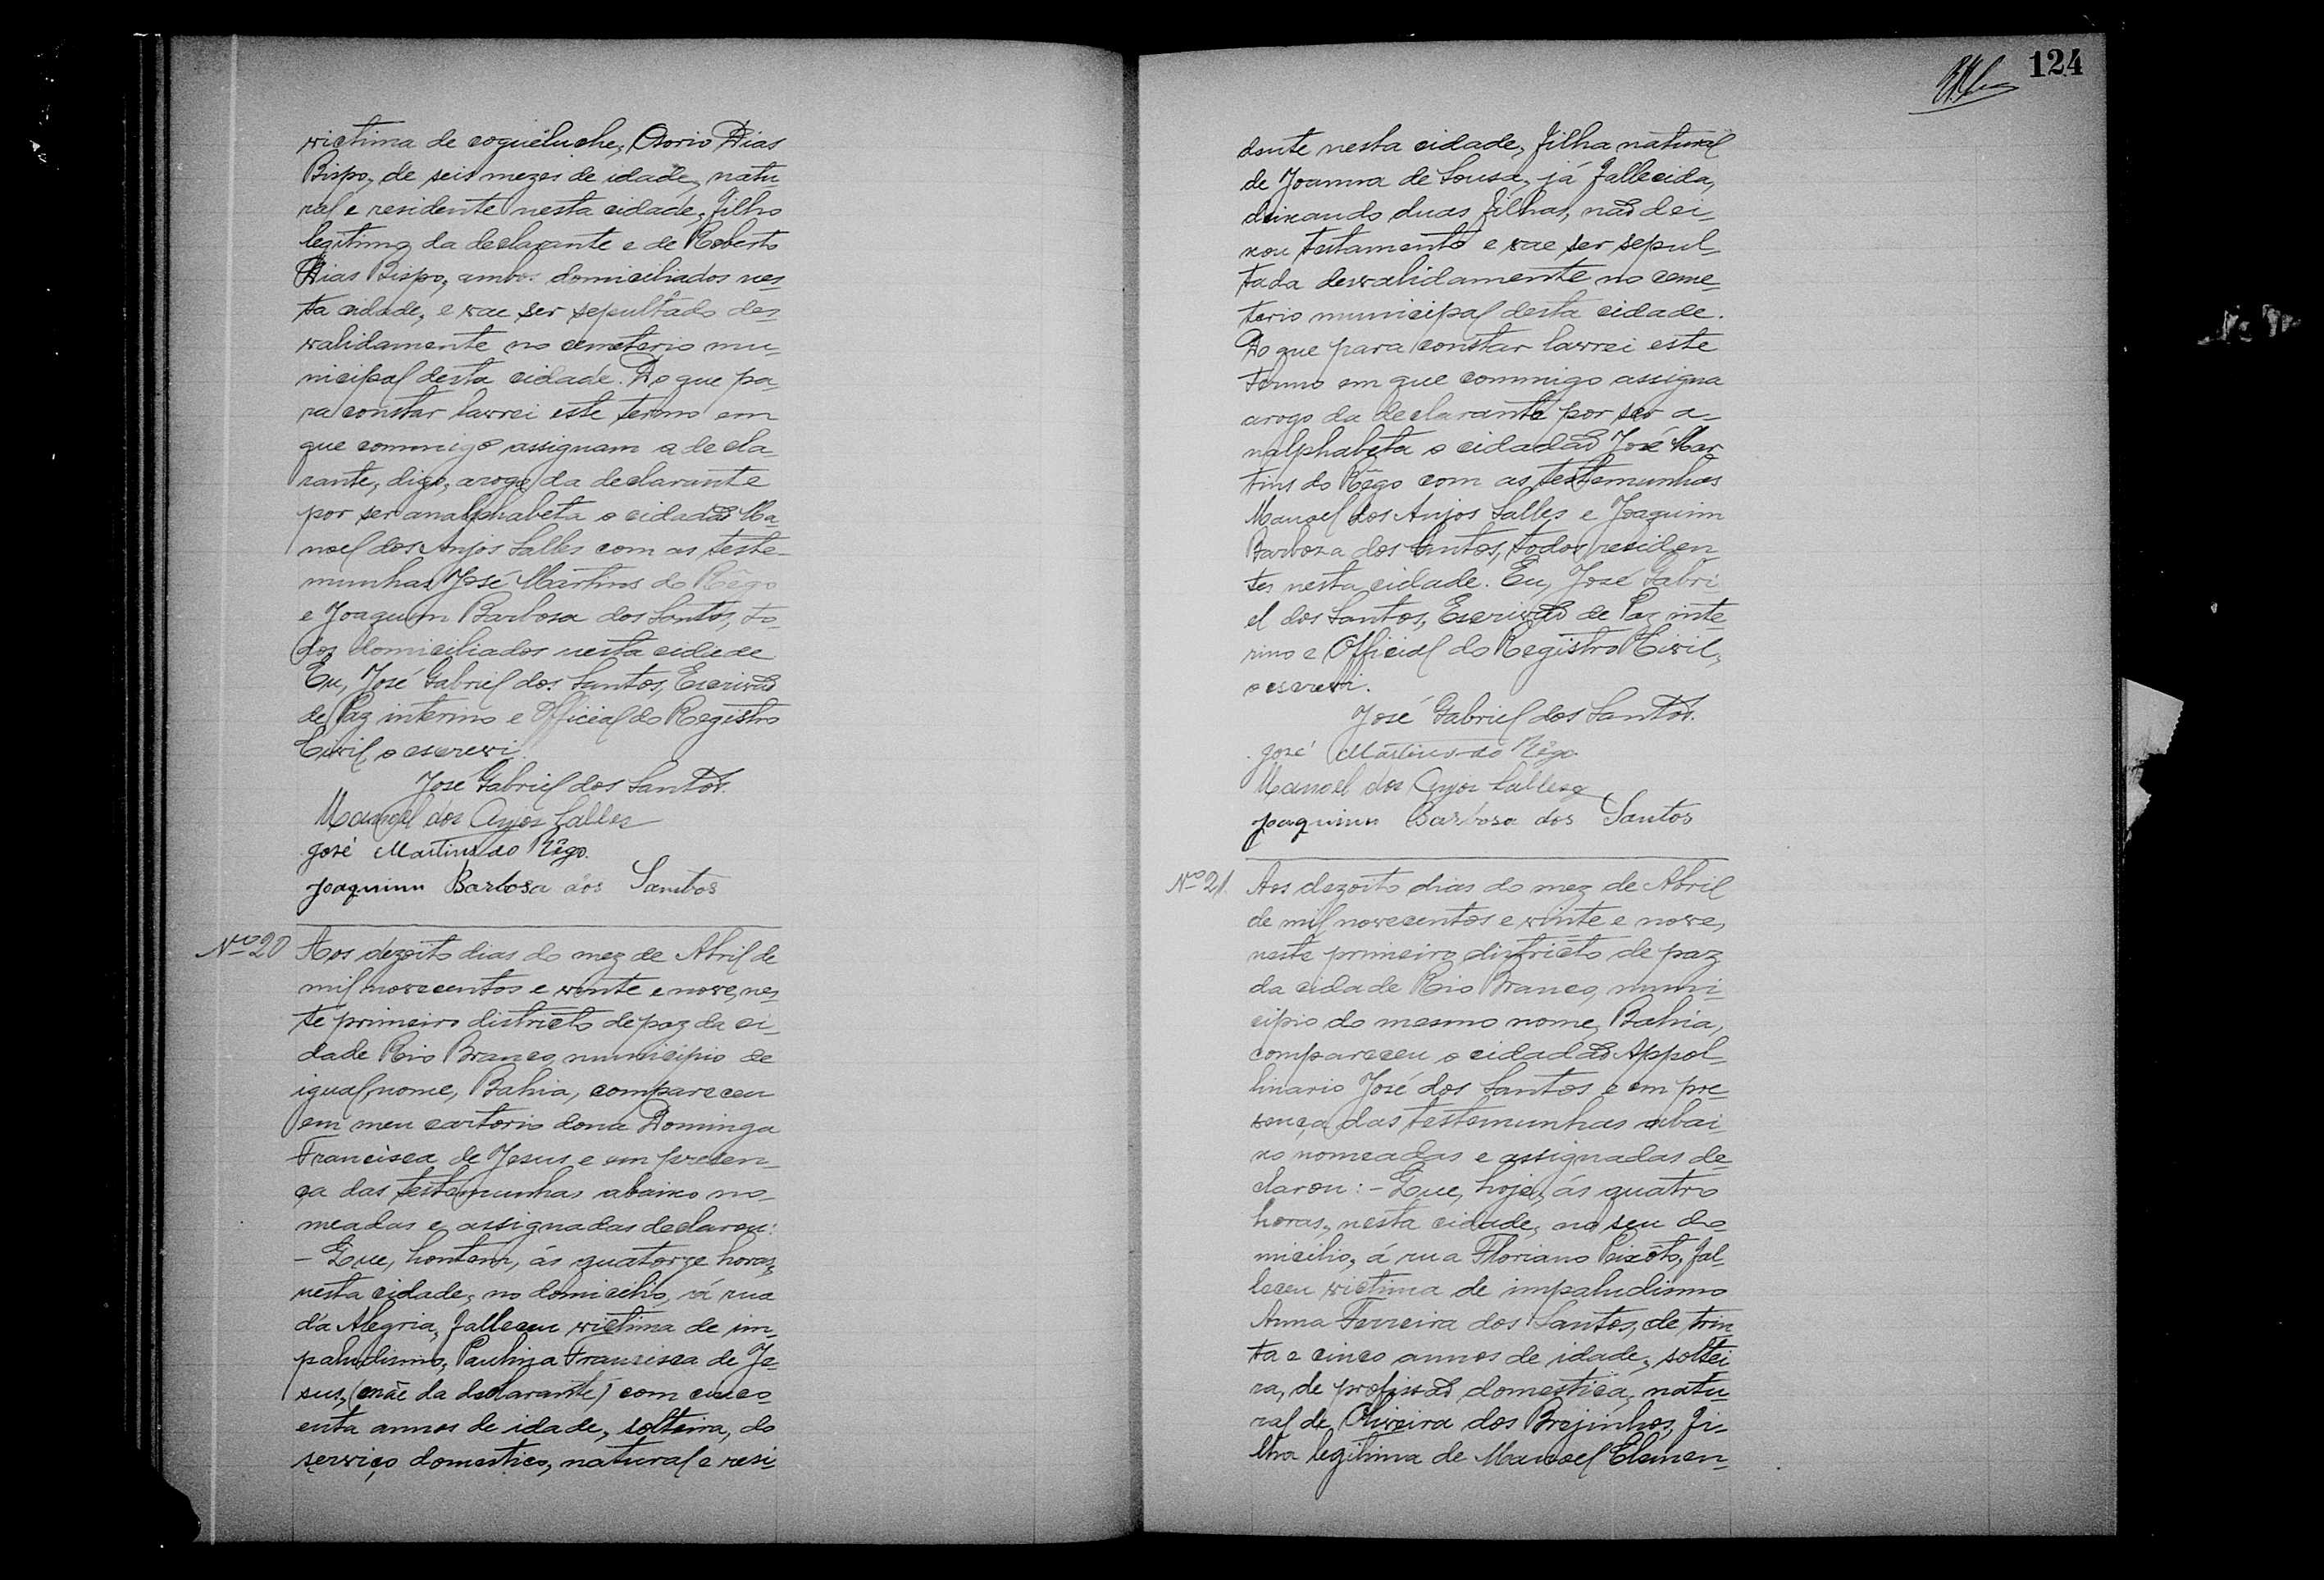 victima de coqueluche, Osorio Dias
Bispo, de seis mezes de idade, natu-
ral e residente nesta cidade, filho
legitimo da declarante e de Roberto
Dias Bispo, ambos domiciliados nes-
ta cidade, e vae ser sepultado des-
validamente no cemeterio mu-
nicipal desta cidade. Do que pa-
ra constar lavrei este termo em
que commigo assignam a decla-
rante, digo, arogo da declarante
por ser analphabeta o cidadão Ma-
noel dos Anjos Salles com as teste-
munhas José Martins do Rêgo
e Joaquim Barbosa dos Santos, to-
dos domiciliados nesta cidade
Eu, José Gabriel dos Santos, Escrivão
de Paz interino e Official do Registro
Civil, o escrevi.
José Gabriel dos Santos.
Manoel dos Anjos Salles
José Martins do Rêgo.
Joaquim Barbosa dos Santos
Nº 20 Aos dezoito dias do mez de Abril de
mil novecentos e vinte e nove, nes-
te primeiro districto de paz da ci-
dade Rio Branco, municipio de
igual nome, Bahia, compareceu
em meu cartorio dona Dominga
Francisca de Jesus e em presen-
ça das testemunhas abaixo no-
meadas e assignadas declarou:
- Que, hontem, ás quatorze horas,
nesta cidade, no domicilio, á rua
da Alegria, falleceu victima de im-
paludismo, Paulina Francisca de Je-
sus, (mãe da declarante) com cinco-
enta annos de idade, solteira, do
serviço domestico, natural e resi-
124
dente nesta cidade, filha natural
de Joanna de Sousa, já fallecida,
deixando duas filhas, não dei-
xou testamento e vae ser sepul-
tada desvalidamente no ceme-
terio municipal desta cidade.
Do que para constar lavrei este
termo em que commigo assigna
arogo da declarante por ser a-
nalphabeta o cidadão José Mar-
tins do Rêgo com as testemunhas
Manoel dos Anjos Salles e Joaquim
Barbosa dos Santos, todos residen-
tes nesta cidade. Eu, José Gabri-
el dos Santos, Escrivão de Paz inte-
rino e Official do Registro Civil,
o escrevi.
José Gabriel dos Santos.
José Martins do Rêgo
Manoel dos Anjos Salles
Joaquim Barbosa dos Santos
Nº 21. Aos dezoito dias do mez de Abril
de mil novecentos e vinte e nove,
neste primeiro districto de paz
da cidade Rio Branco, muni-
cipio do mesmo nome, Bahia,
compareceu o cidadão Appol-
linario José dos Santos e em pre-
sença das testemunhas abai-
xo nomeadas e assignadas de-
clarou: - Que, hoje, ás quatro
horas, nesta cidade, no seu do-
micilio, á rua Floriano Peixôto, fal-
leceu victima de impaludismo
Anna Ferreira dos Santos, de trin-
ta e cinco annos de idade, soltei-
ra, de profissão domestica, natu-
ral de Oliveira dos Brejinhos, fi-
lha legitima de Manoel Clemen-